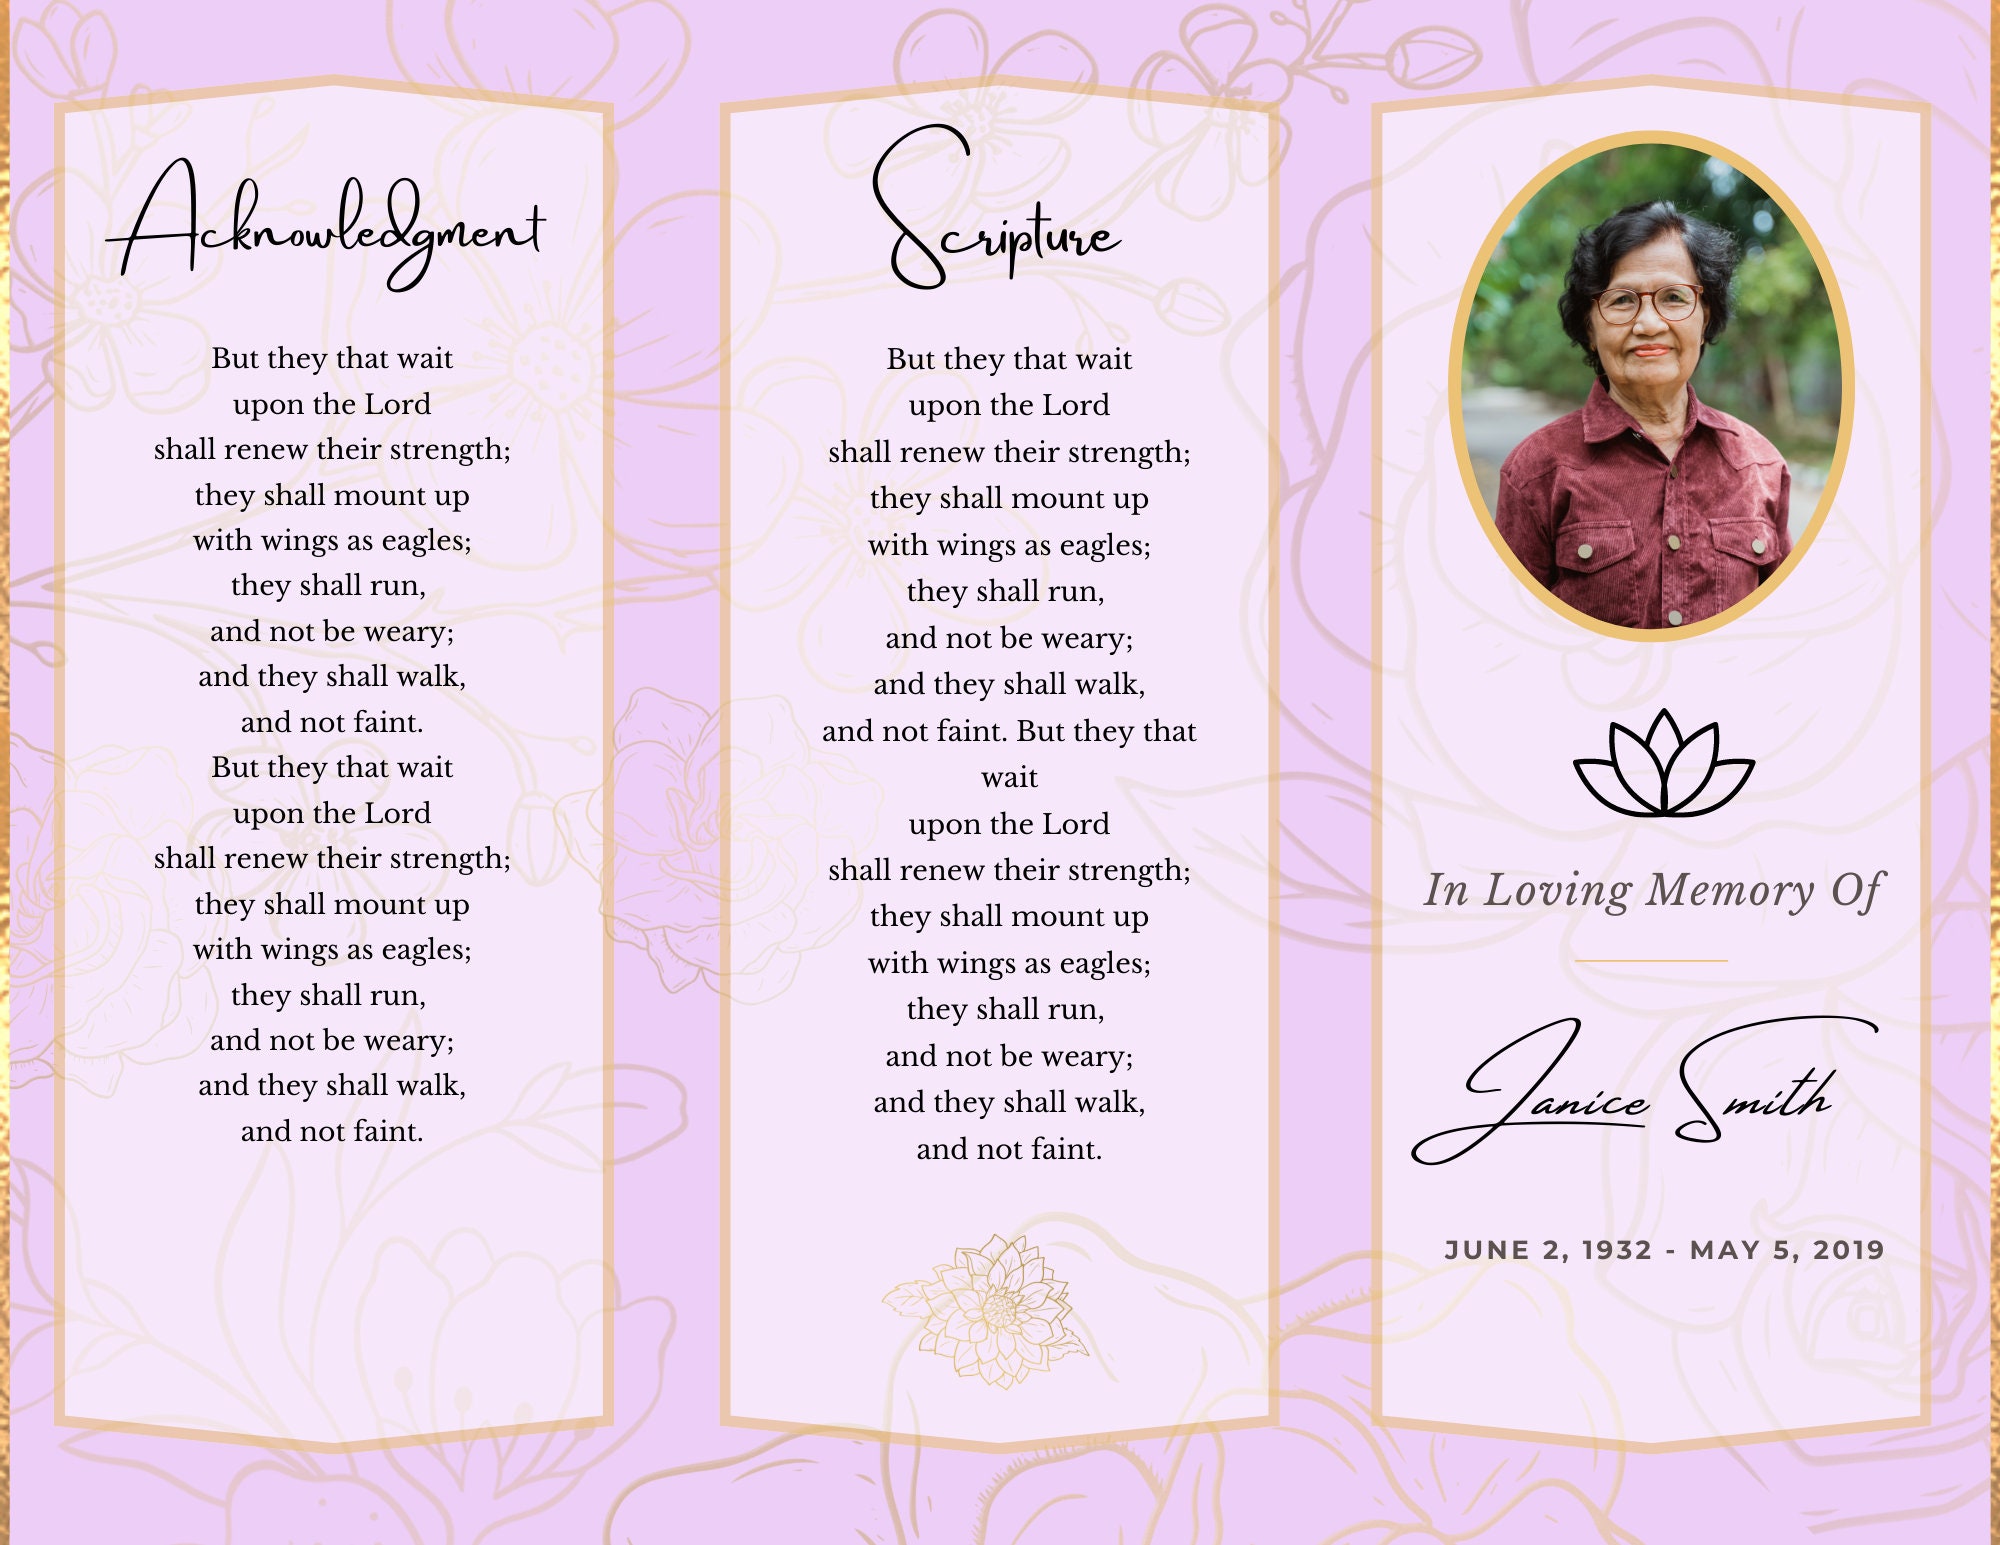 Acknowledgment
But they that wait
upon the Lord
shall renew their strength;
they shall mount up
with wings as eagles;
they shall run,
and not be weary;
and they shall walk,
and not faint.
But they that wait
upon the Lord
shall renew their strength;
they shall mount up
with wings as eagles;
they shall run,
and not be weary;
and they shall walk,
and not faint.
Scripture
But they that wait
upon the Lord
shall renew their strength;
they shall mount up
with wings as eagles;
they shall run,
and not be weary;
and they shall walk,
and not faint. But they that
wait
upon the Lord
shall renew their strength;
they shall mount up
with wings as eagles;
they shall run,
and not be weary;
and they shall walk,
and not faint.
In Loving Memory Of
Janice Smith
JUNE 2, 1932 - MAY 5, 2019